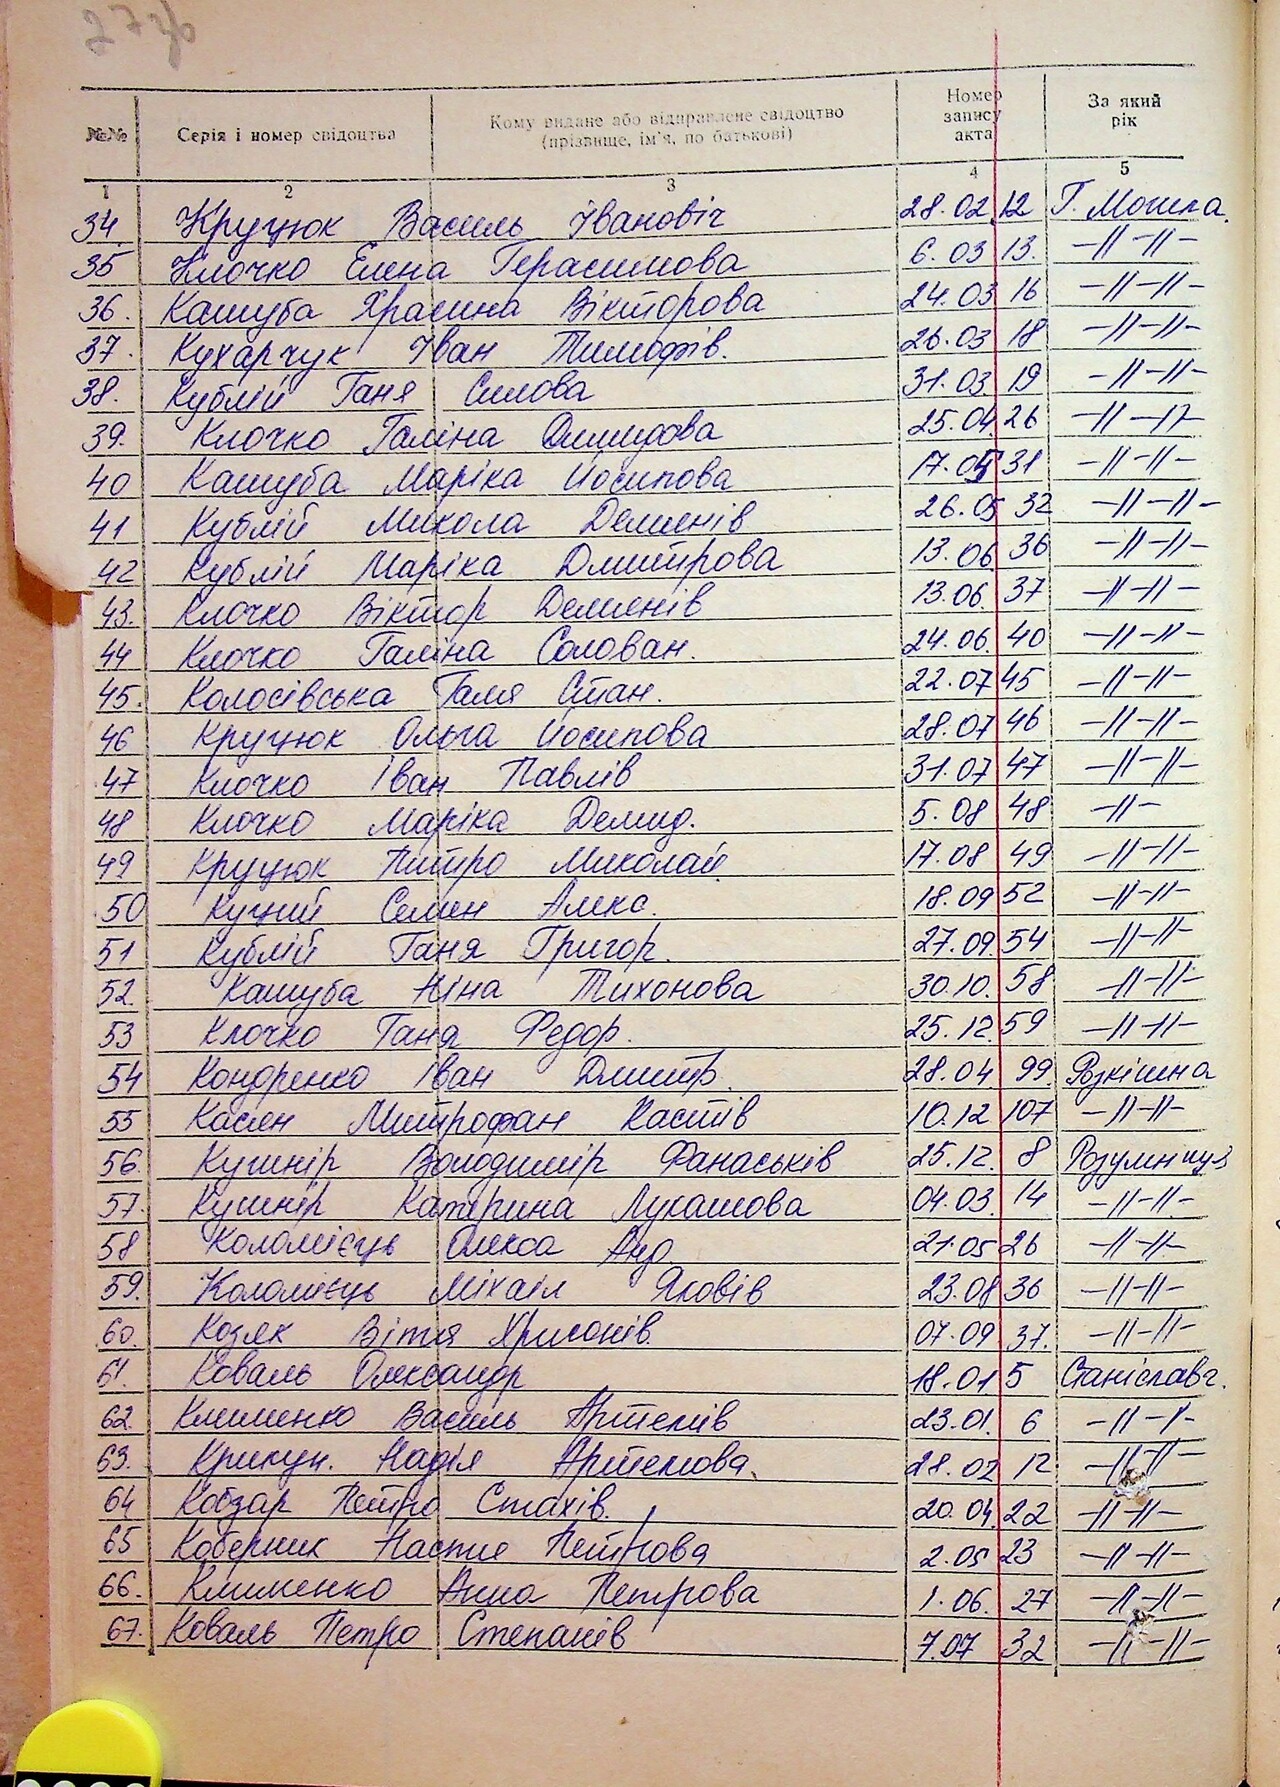 27зв
№№ Серія і номер свідоцтва Кому видане або відправлене свідоцтво (прізвище, ім'я, по батькові) Номер запису акта За який рік
1 2 3 4 5
34. Круцюк Василь Івановіч 28.02 12 Г. Могила.
35 Клочко Елена Герасимова 6.03 13. -//-//-
36. Кашуба Храсина Вікторова 24.03 16 -//-//-
37. Кухарчук Іван Тимофів. 26.03 18 -//-//-
38. Кублій Ганя Силова 31.03. 19 -//-//-
39. Клочко Галіна Демидова 25.04. 26 -//-//-
40 Кашуба Маріка Йосипова 17.05 31 -//-//-
41 Кублій Микола Деменів 26.05 32 -//-//-
42 Кублій Маріка Дмитрова 13.06 36 -//-//-
43. Клочко Віктор Деменів 13.06. 37 -//-//-
44 Клочко Галіна Солован. 24.06. 40 -//-//-
45. Колосівська Галя Стан. 22.07 45 -//-//-
46 Круцюк Ольга Йосипова 28.07 46 -//-//-
47 Клочко Іван Павлів 31.07 47 -//-//-
48 Клочко Маріка Демид. 5.08 48 -//-
49 Круцюк Питро Миколай 17.08 49 -//-//-
50 Куций Семен Алекс. 18.09 52 -//-//-
51 Кублій Ганя Григор. 27.09. 54 -//-//-
52. Кашуба Ніна Тихонова 30.10. 58 -//-//-
53 Клочко Ганя Федор. 25.12. 59 -//-//-
54 Кондренко Іван Дмитр. 28.04 99. Розкішна
55 Касян Митрофан Кастів 10.12 107 -//-//-
56. Кушнір Володимір Фанаськів 25.12. 8 Розумниц з
57. Кушнір Катерина Лукашова 04.03. 14 -//-//-
58 Коломієць Олекса Анд. 21.05 26 -//-//-
59. Коломієць Міхаіл Яковів 23.08 36 -//-//-
60. Козяк Вітя Хрисонів. 07.09 37. -//-//-
61. Коваль Олександр 18.01 5 Станіславч.
62. Клименко Василь Артемів 23.01. 6 -//-//-
63. Крикун. Надія Артемова. 28.02 12 -//-//-
64 Кобзар Петро Стахів. 20.04. 22 -//-//-
65 Коберник Настие Петрова 2.05 23 -//-//-
66. Клименко Анна Петрова 1.06. 27 -//-//-
67. Коваль Петро Степанів 7.07 32 -//-//-